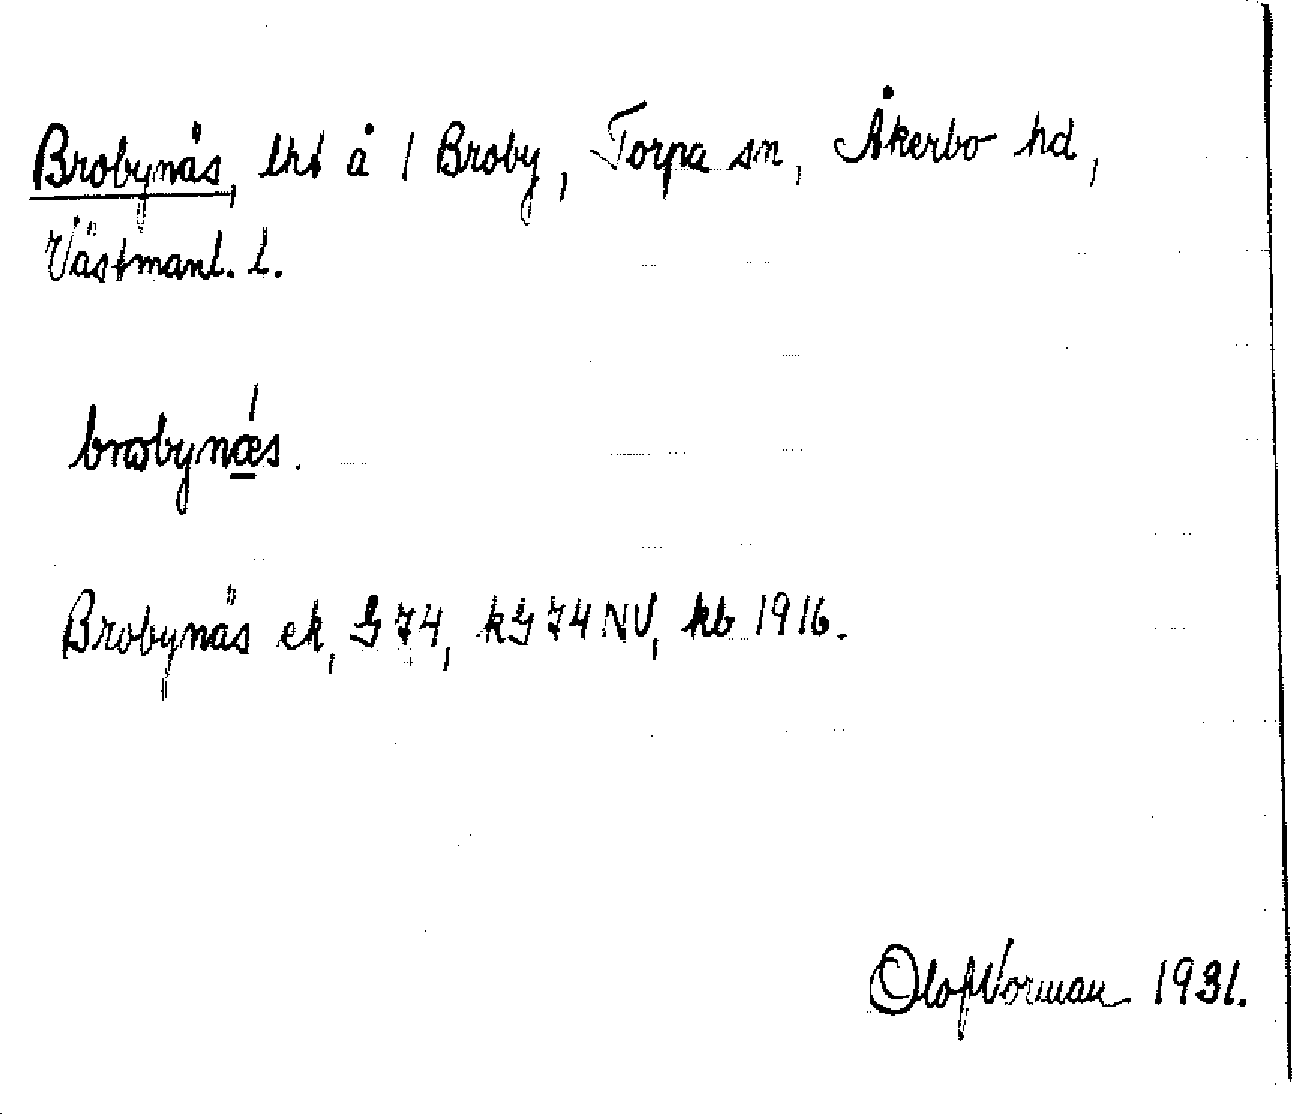 Brobynäs, lht å 1 Broby, Torpa sn, Åkerbo hd,
Västmanl. l.
brobynǽ̲s.
Brobynäs ek, G 74, kG 74 NV, kb 1916.
Olof Norman 1931.